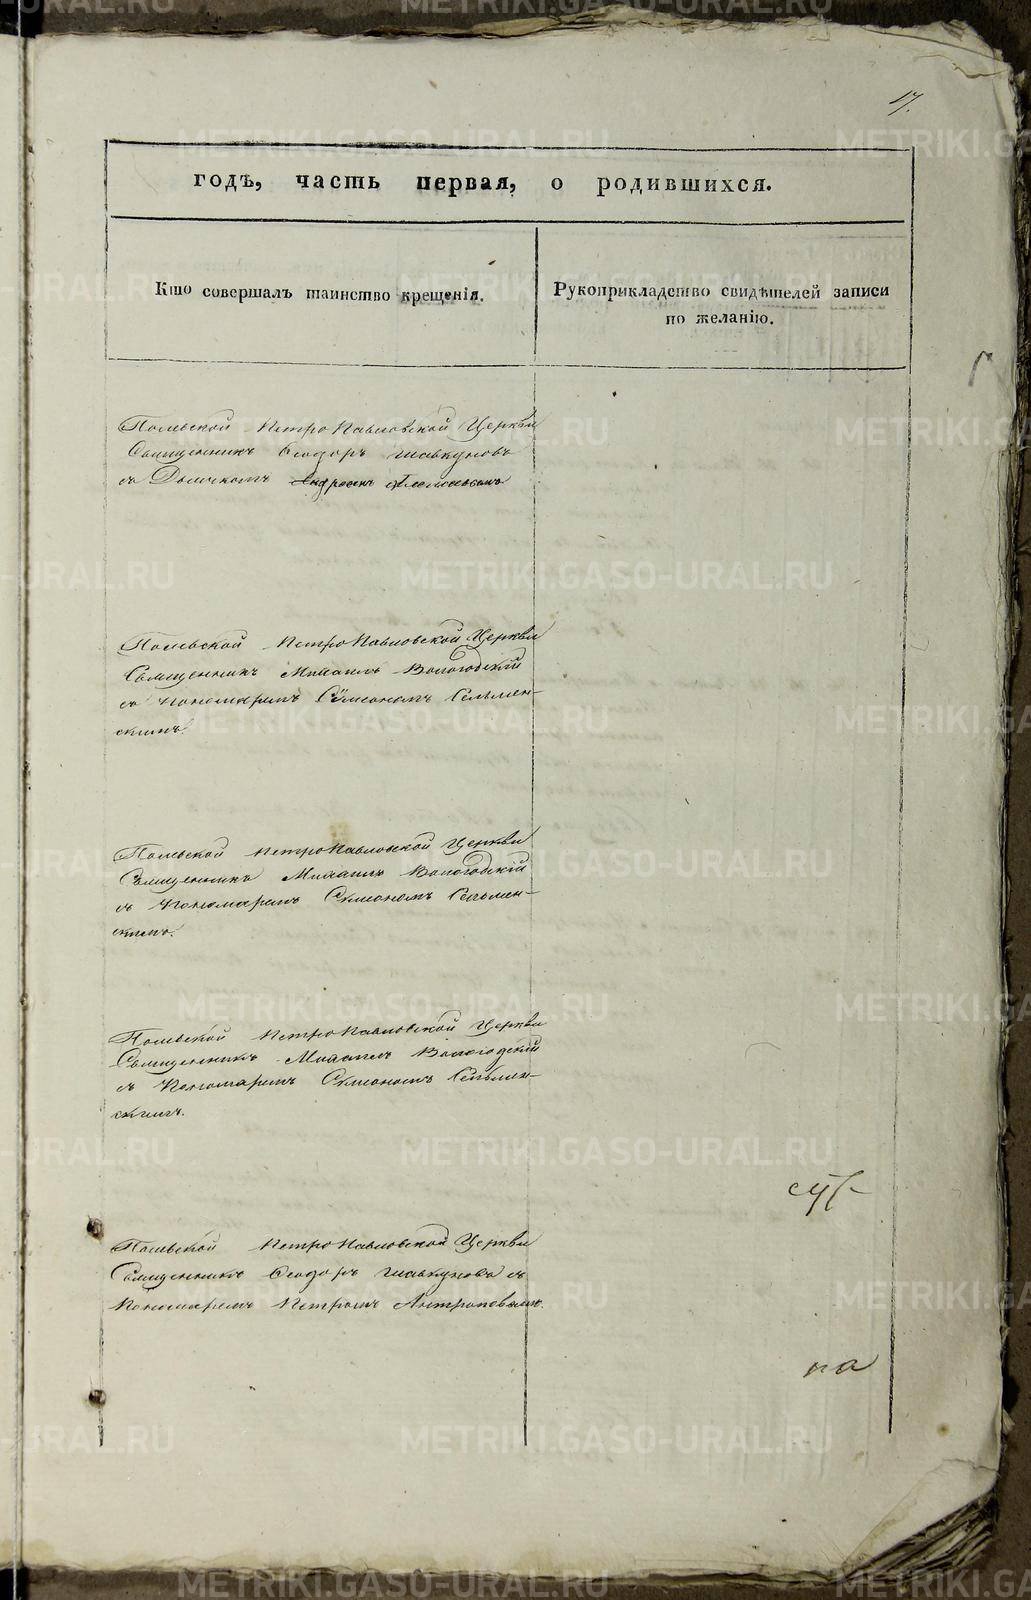 17.
годъ, часть первая, о родившихся.
Кто совершалъ таинство крещенія.
Рукоприкладство свидѣтелей записи
по желанію.
Польской Петро Павловской Церкви
Священникъ Ѳеодоръ
съ Дьячкомъ Андреемъ
Польской Петро Павловской Церкви
Священникъ Михаилъ Вологодскій
съ Пономаремъ Сѵмеономъ Сельмен-
скимъ.
Польской Петро Павловской Церкви
Священникъ Михаилъ Вологодскій
съ Пономаремъ Сѵмеономъ Сельмен-
скимъ.
Польской Петро Павловской Церкви
Священникъ Михаилъ Вологодскій
съ Пономаремъ Сѵмеономъ Сельмен-
скимъ.
Польской Петро Павловской Церкви
Священникъ Ѳеодоръ съ
Пономаремъ Петромъ Антроповымъ.
на
METRIKI.GASO-URAL.RU